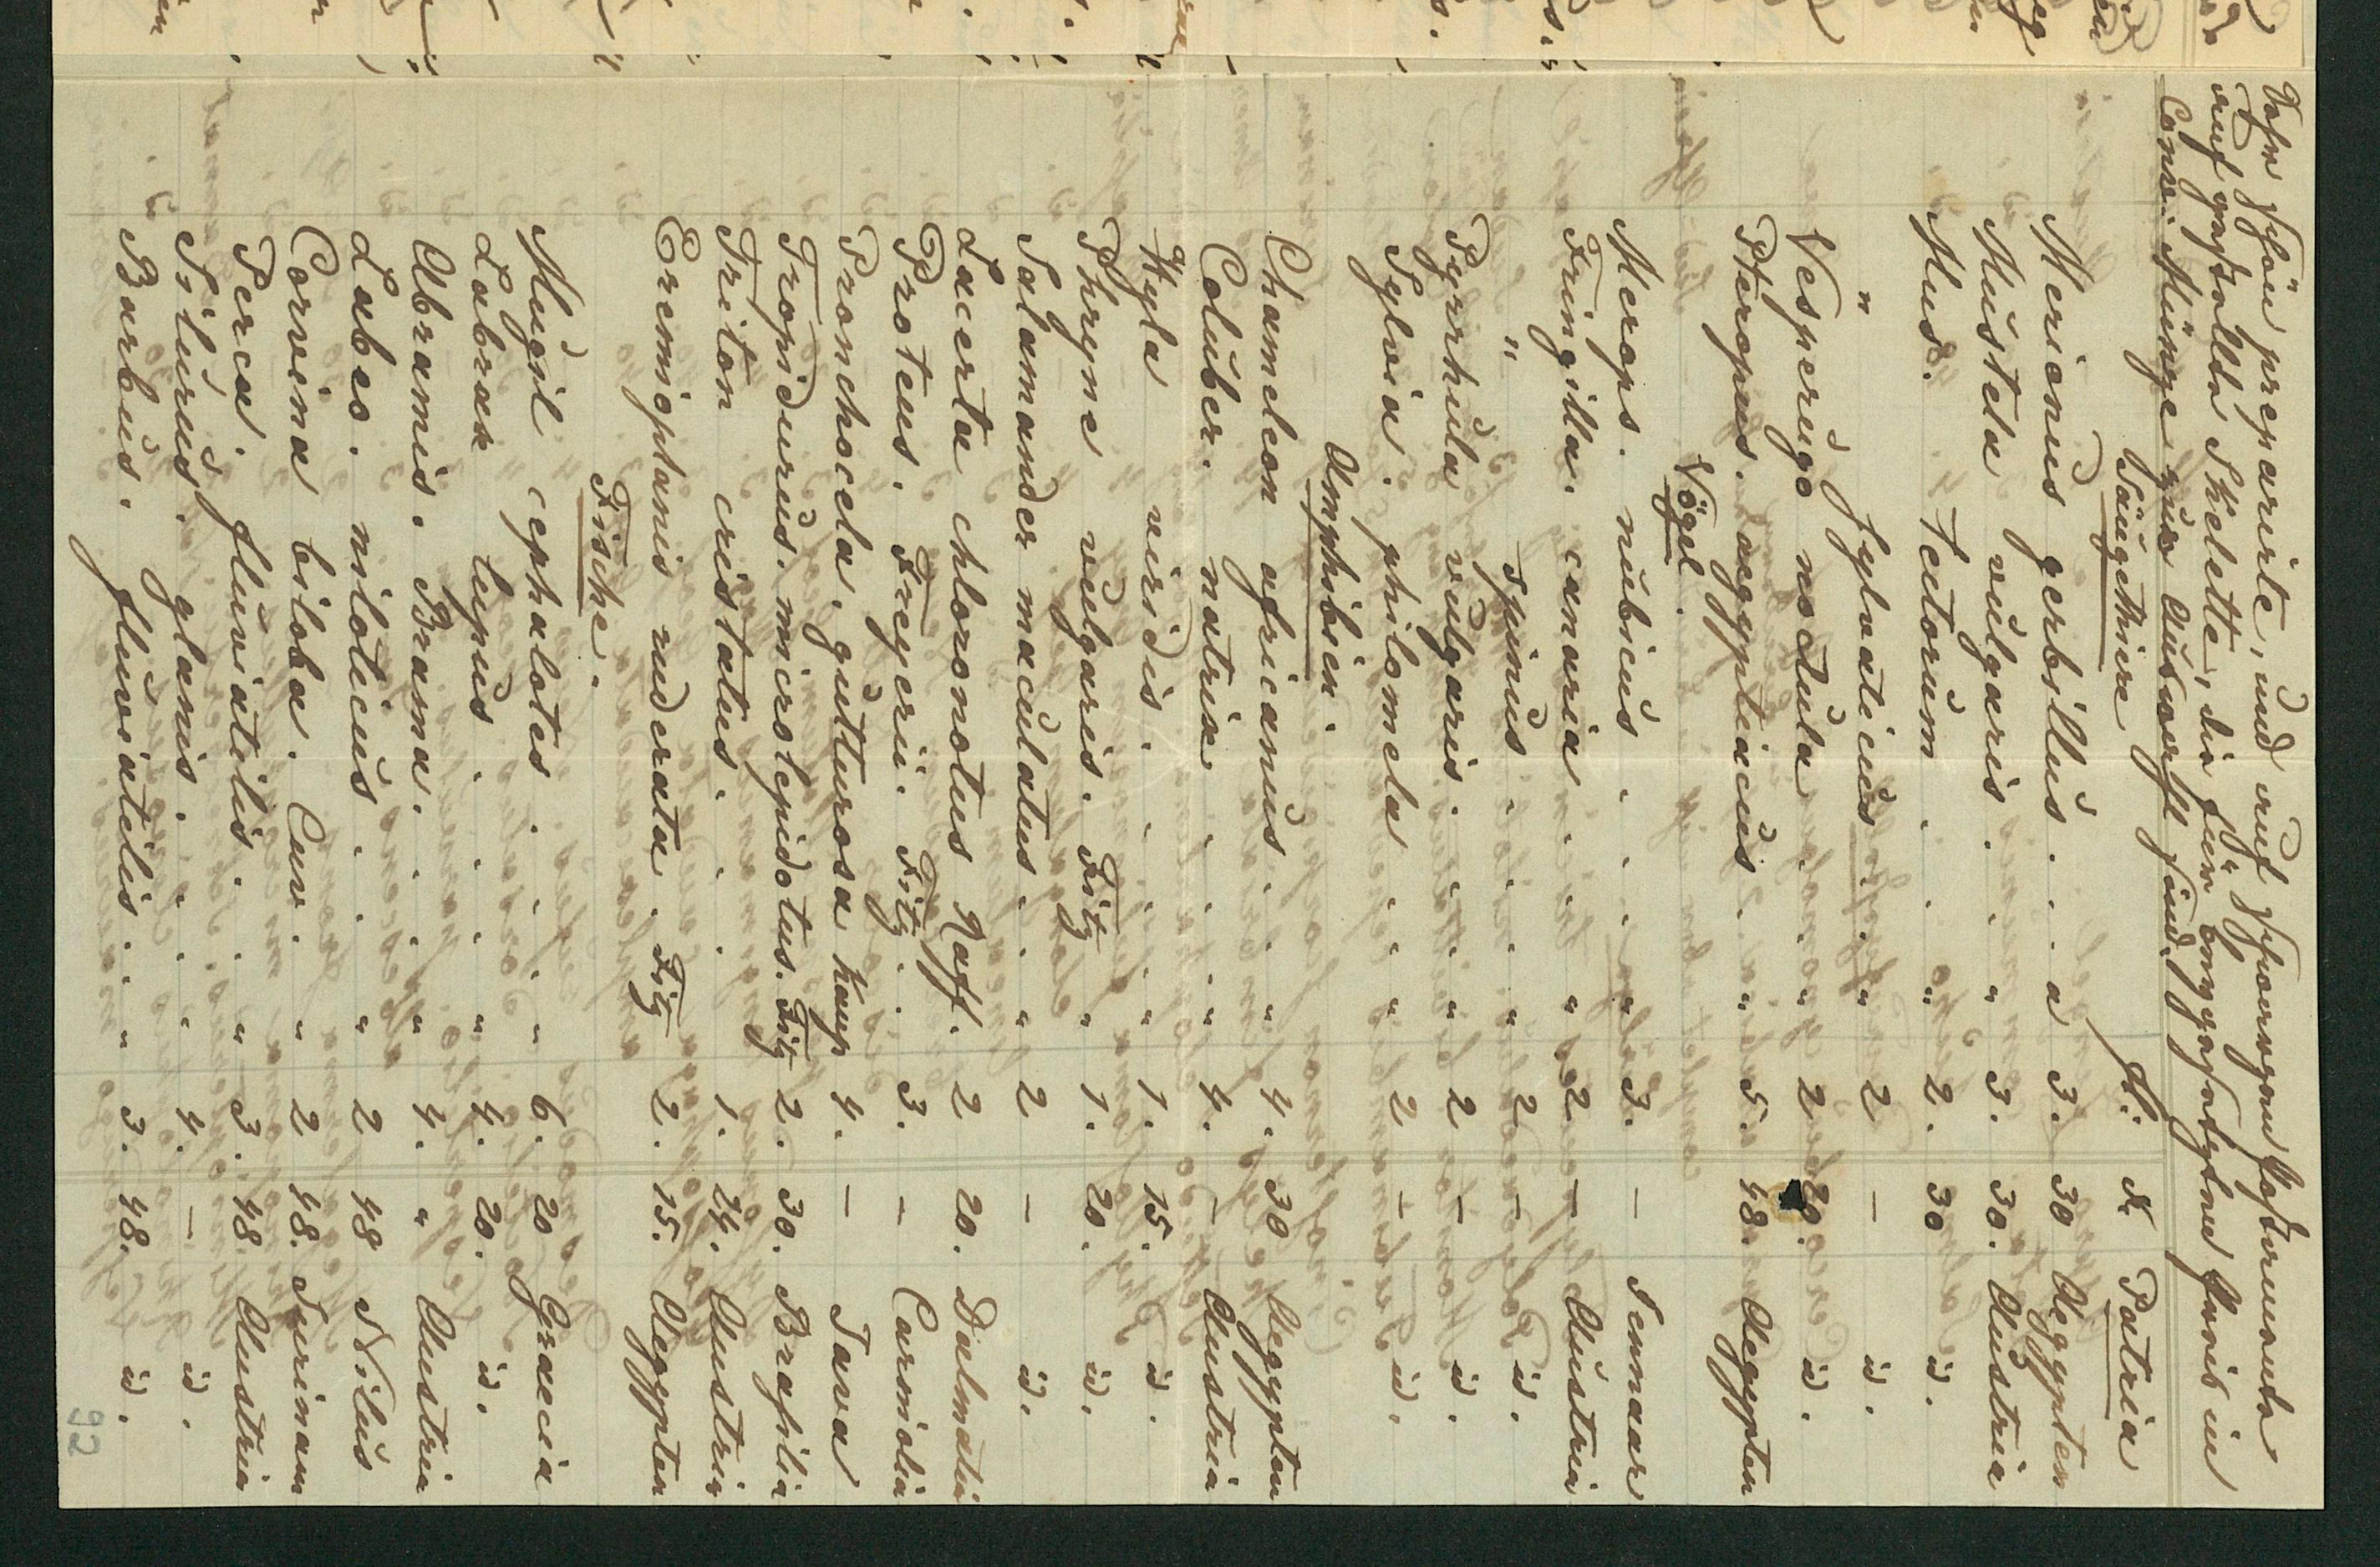 Sehr schön preparirte, und auf schwarzen postamente
auf gestellte Skelette, die für beygesetzten preis in
Conv: Münze zur Auswahl sind.
Säugethiere fl. Xr Patria
Merionus gerbillus . . . a 3. 30 Aegypten
Mustela vulgaris . . . " 3. 30. Austria
Mus. Tectorum . . . " 2. 30 id.
" sylvaticus . . " 2 — id.
Vesperugo noctula . . " 2 20. id.
Pteropus. aegyptiacus . . " 5. 48. Aegypten
Vögel.
Merops. nubicus . . . " 3. — Sennaar
Fringilla. canaria . . . " 2 — Austria
" spinus . . . . " 2. — id.
Pyrrhula vulgaris . . . " 2 — id.
Sylvia. philomela . . . " 2 — id.
Amphibien.
Chameleon africanus . . . " 4. 30 Aegypten
Coluber. natrix . . . " 4. — Austria
Hyla viridis . . . . " 1. 15. id.
Phryne vulgaris. Fitz " 1. 20. id.
Salamander maculatus . . " 2 — id.
Lacerta chloronotus Raff. 2 20. Dalmatia
Proteus. Freyerii. Fitz . . 3. — Carniolia
Bronchocela. gutturosa Kaup 4. — Java
Tropidurus. microlepidotus. Fitz 2. 30. Brasilia
Triton cristatus . . . 1. 24. Austria
Eremioplanis ruderata . Fitz 2. 15. Aegypten
Fische.
Mugil cephalotes . . . " 6. 20 Graecia
Labrax lupus . . . . " 4. 20. id.
Abramis. Brama. . . . " 4. " Austria
Labeo. niloticus . . . " 2 48 Nilus
Corvina biloba. Cuv. . " 2 48. Surinam
Perca. fluviatilis . . . " 3. 48. Austria
Silurus. glanis . . . " 4. — id.
Barbus. fluviatilis . . . " 3. 48. id.
92